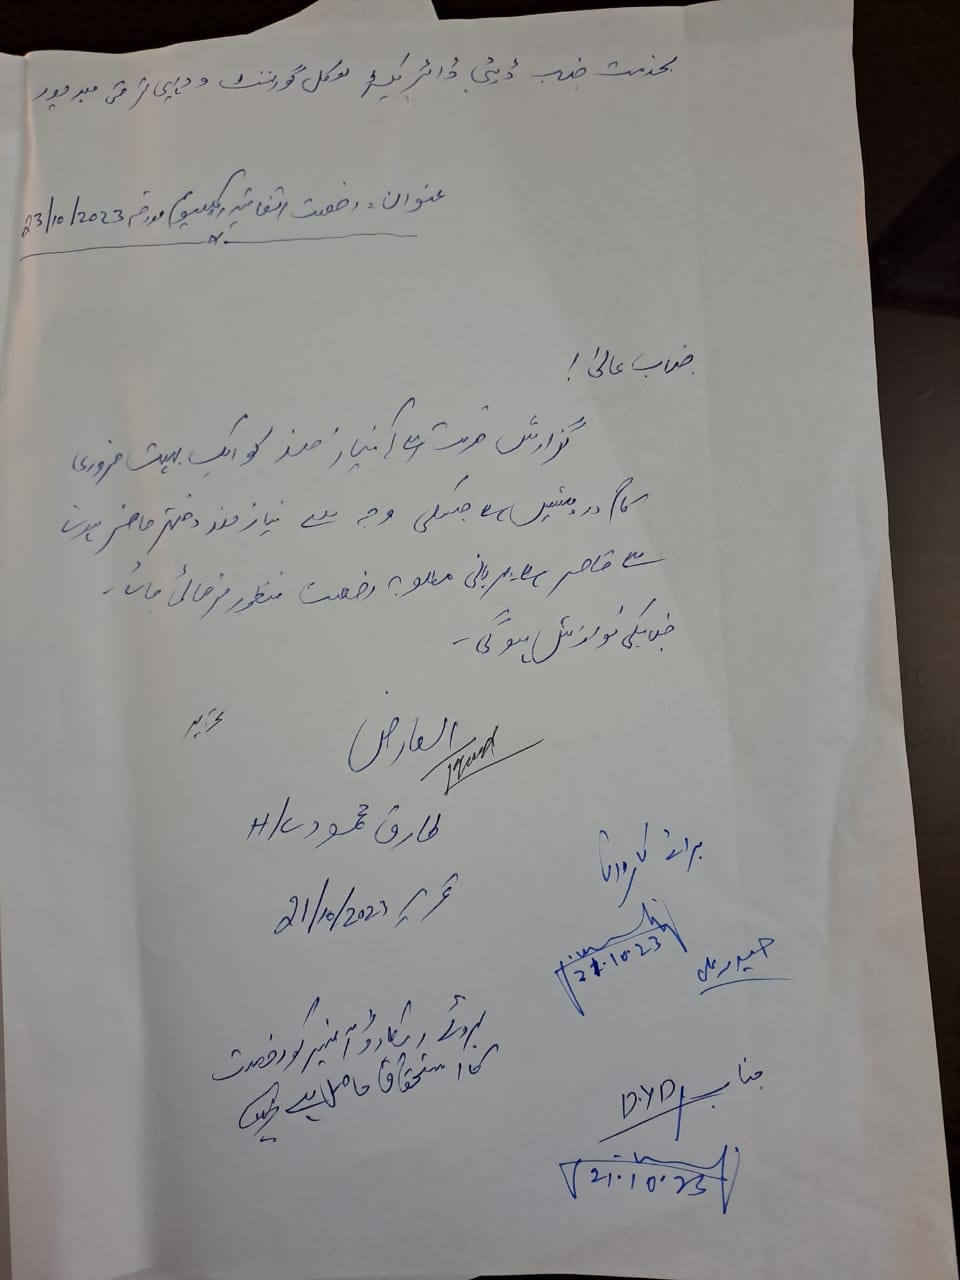 بخدمت جناب ڈپٹی ڈائریکٹر لوکل گورنمنٹ و دیہی ترقی میرپور
عنوان: رخصت اتفاقیہ یکیوم مورخہ 23/10/2023
جناب عالیٰ!
گزارش خدمت ہے کہ نیاز مند کو ایک بہت ضروری
کام درپیش ہے جسکی وجہ سے نیاز مند دفتر حاضر ہونے
سے قاصر ہے مہربانی مطلوبہ رخصت منظور فرمائی جائے۔
جناب کی نوازش ہو گی۔
العارض
طارق محمود
تحریر 21/10/2023
برائے کاروائی
21.10.23
بروئے ریکارڈ آفیسر کو رخصت
کا استحقاق حاصل ہے
جناب D.D
21.10.23